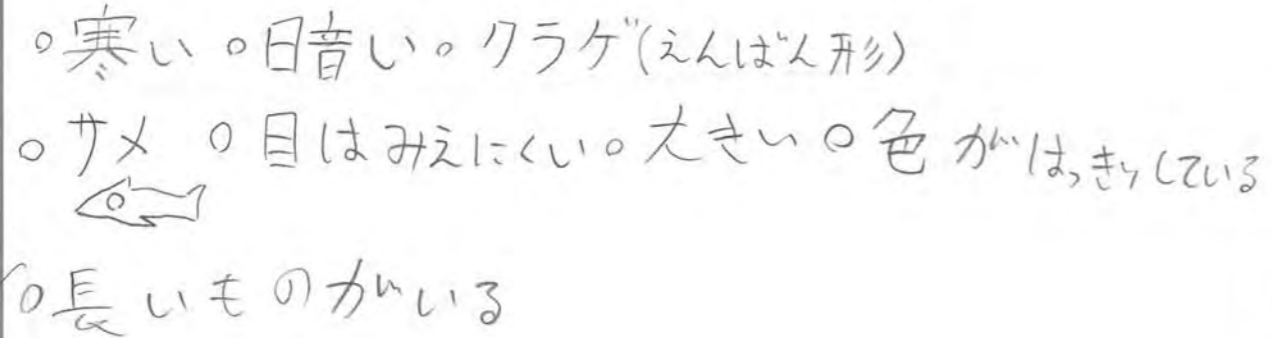 ○寒い ○暗い ○クラゲ(えんばん形)
○サメ ○目はみえにくい ○大きい ○色がはっきりしている
○長いものがいる